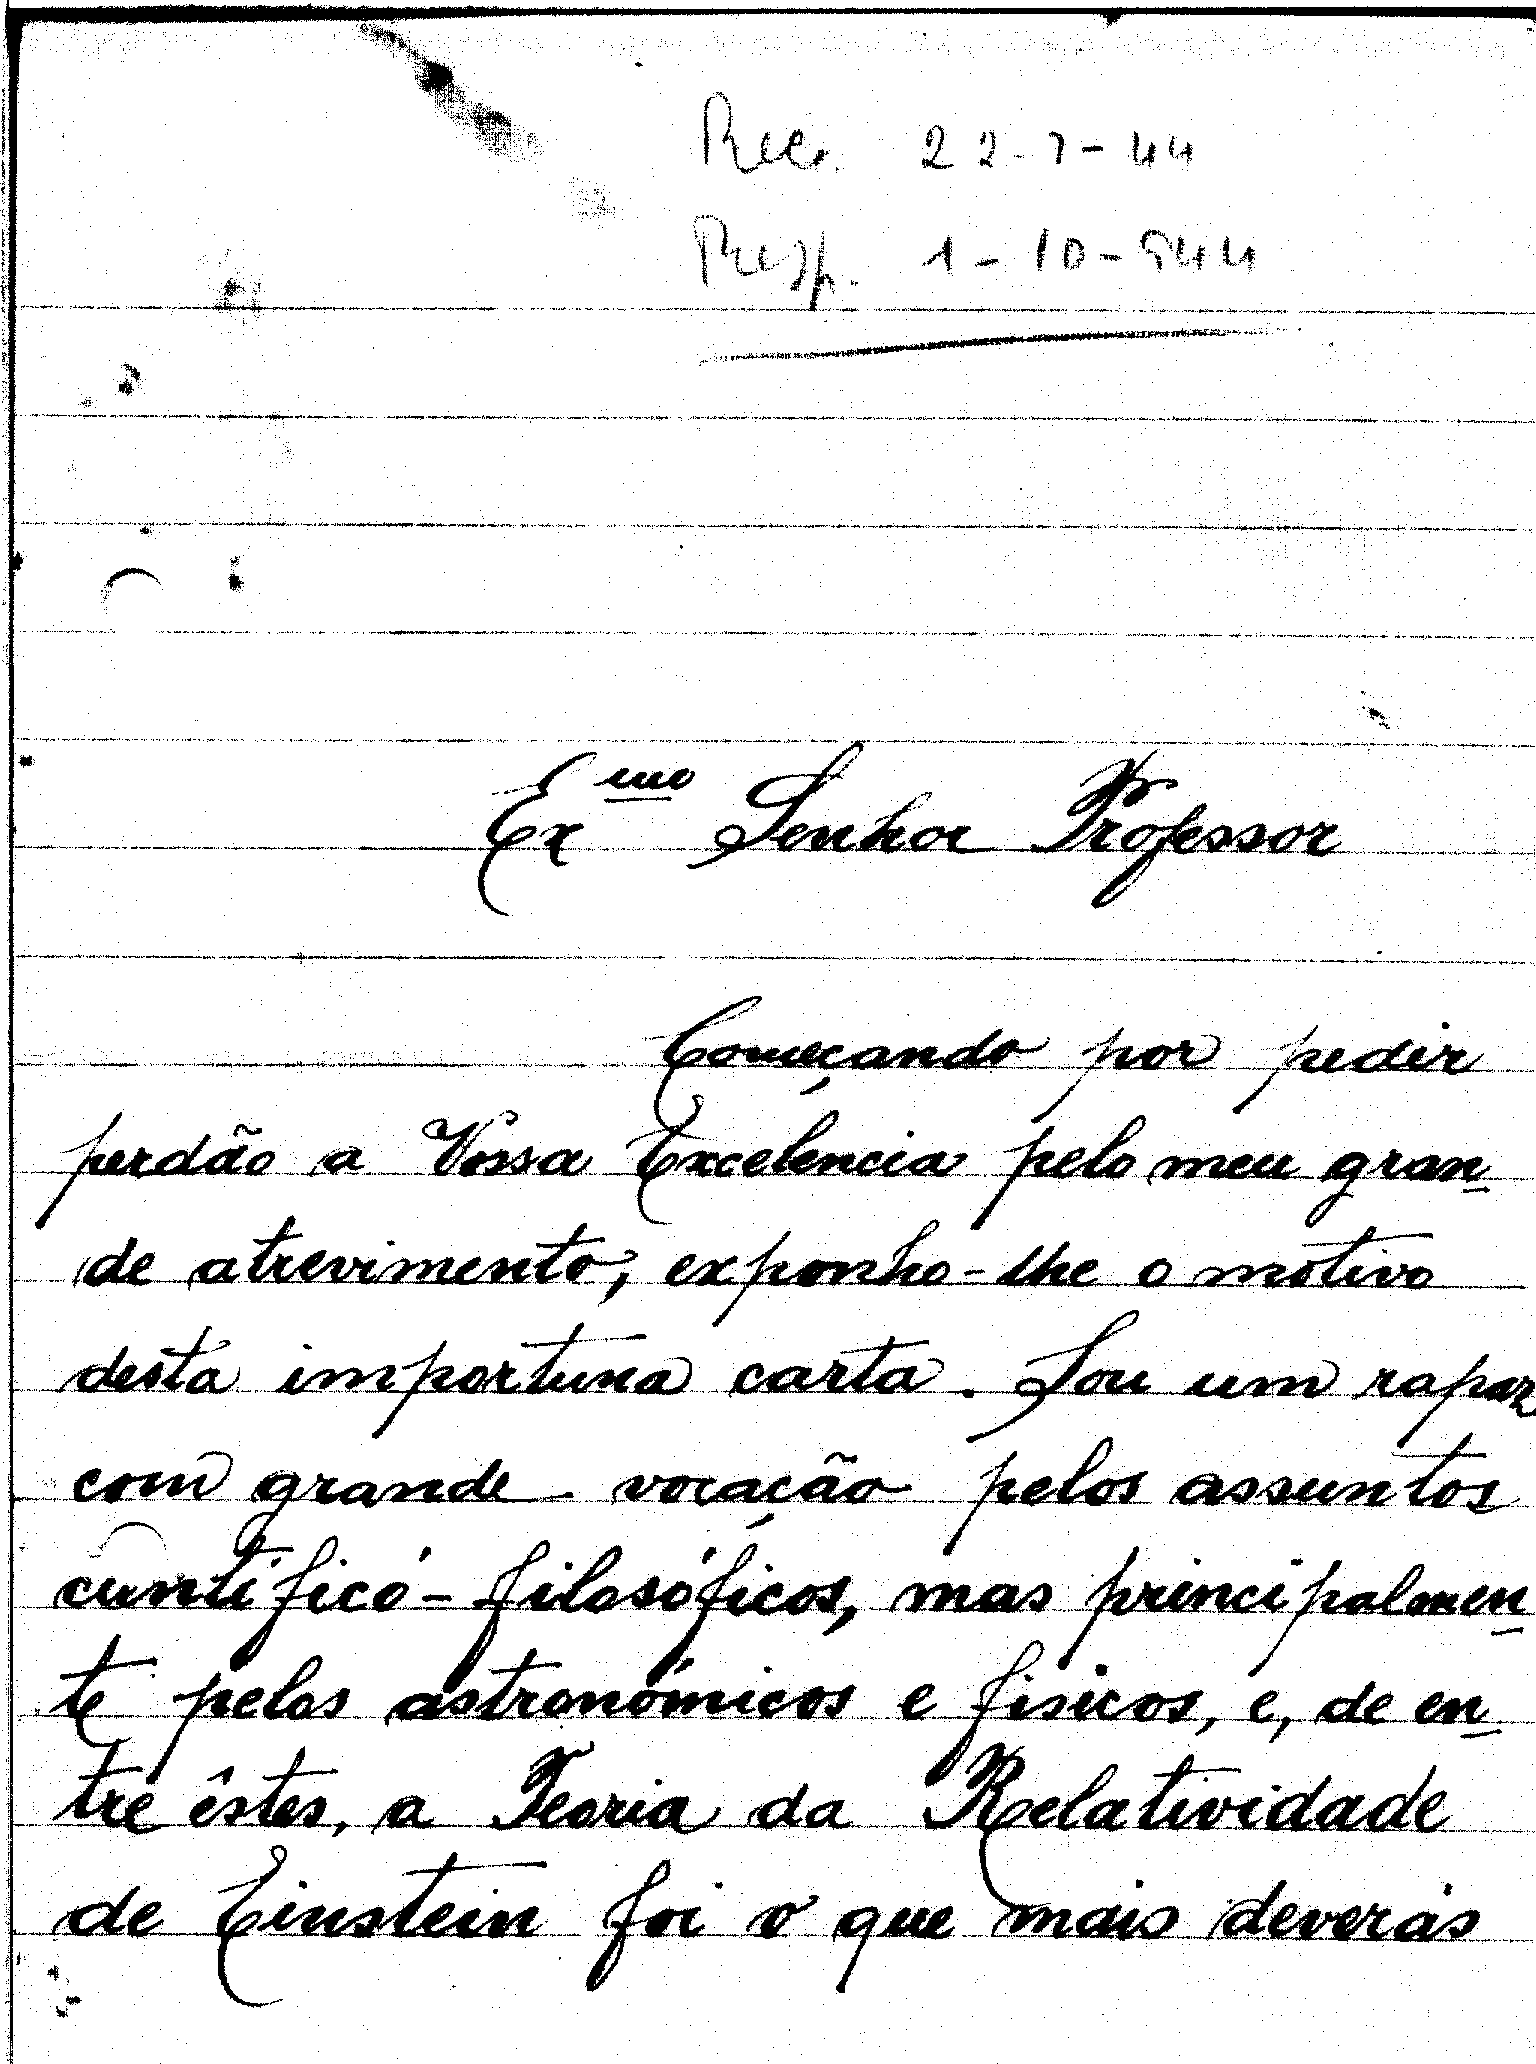 Rec. 22-7-44
Resp. 1-10-944
Exmo Senhor Professor
Começando por pedir
perdão a Vossa Excelência pelo meu gran-
de atrevimento, exponho-lhe o motivo
desta importuna carta. Sou um rapaz
com grande vocação pelos assuntos
cientificó-filosóficos, mas principalmen-
te pelos astronómicos e fisicos, e, de en-
tre êstes, a Teoria da Relatividade
de Einstein foi o que mais deveras